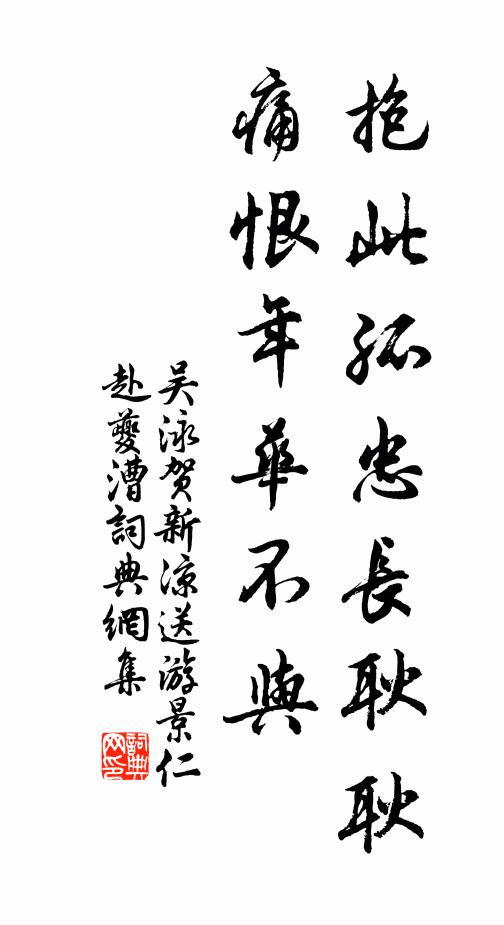 抱此孤忠長耿耿
痛恨年華不與
吴泳贺新凉送游景仁
赴夔漕詞典網集
詞典網印